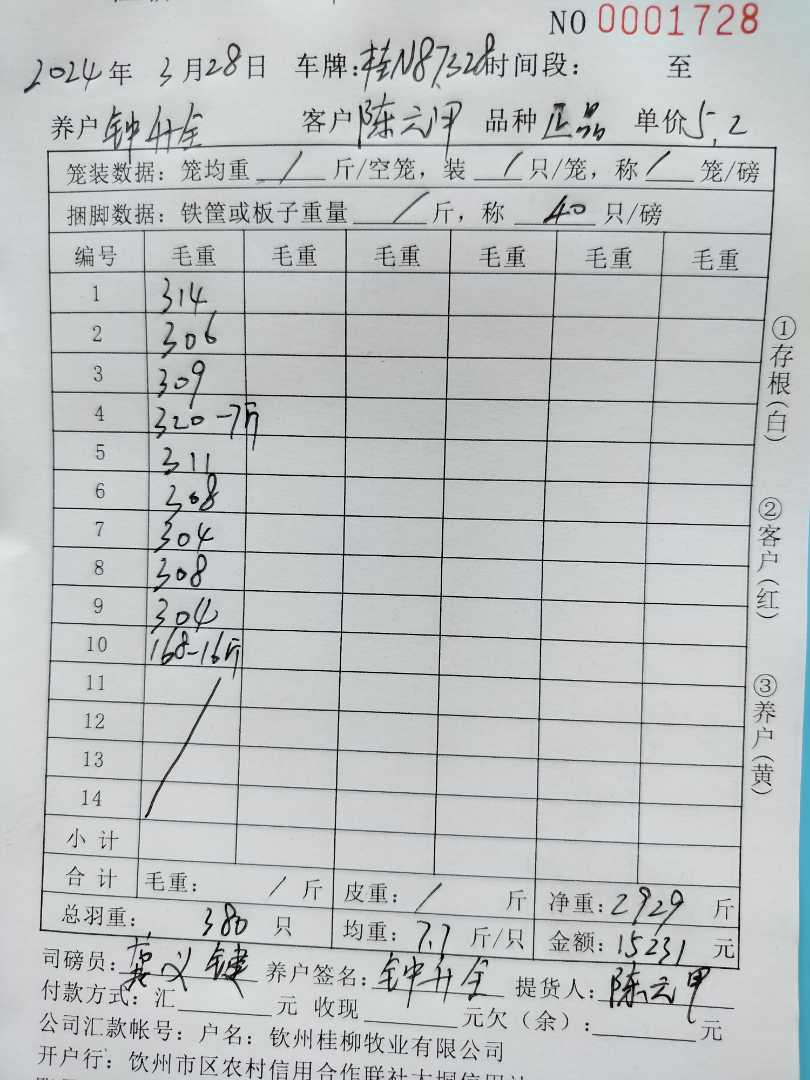 NO 0001728
2024年 3月28日 车牌:桂N87328时间段: 至
养户 钟升全 客户 陈云甲 品种 正品 单价5.2
笼装数据: 笼均重 / 斤/空笼, 装 / 只/笼, 称 / 笼/磅
捆脚数据: 铁筐或板子重量 / 斤, 称 40 只/磅
编号 毛重 毛重 毛重 毛重 毛重 毛重
1 314
2 306
3 309
4 320-7斤
5 311
6 308
7 304
8 308
9 304
10 168-16斤
11
12
13
14
小计
合计 毛重: / 斤 皮重: / 斤 净重: 2929 斤
总羽重: 380 只 均重: 7.7 斤/只 金额: 15231 元
司磅员: 义键 养户签名: 钟升全 提货人: 陈云甲
付款方式: 汇 元 收现 元欠(余): 元
公司汇款帐号: 户名: 钦州桂柳牧业有限公司
开户行: 钦州市区农村信用合作联社大垌信用社
①存根(白)
②客户(红)
③养户(黄)